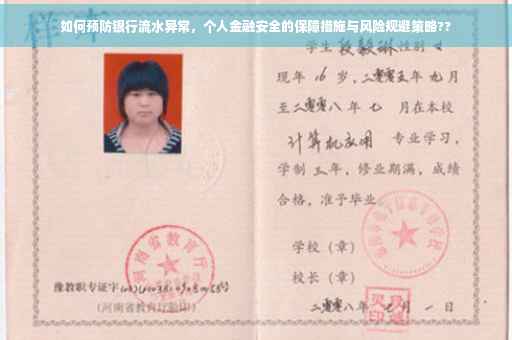 如何预防银行流水异常，个人金融安全的保障措施与风险规避策略??
样本
学生段毅琳性别女
现年16岁，二零零五年九月
至二零零八年七月在本校
计算机应用 专业学习，
学制三年，修业期满，成绩
合格，准予毕业。
学校（章）
校长（章）
二零零八年 月一日
河南省教育厅
豫教职专证字
（河南省教育厅验印）